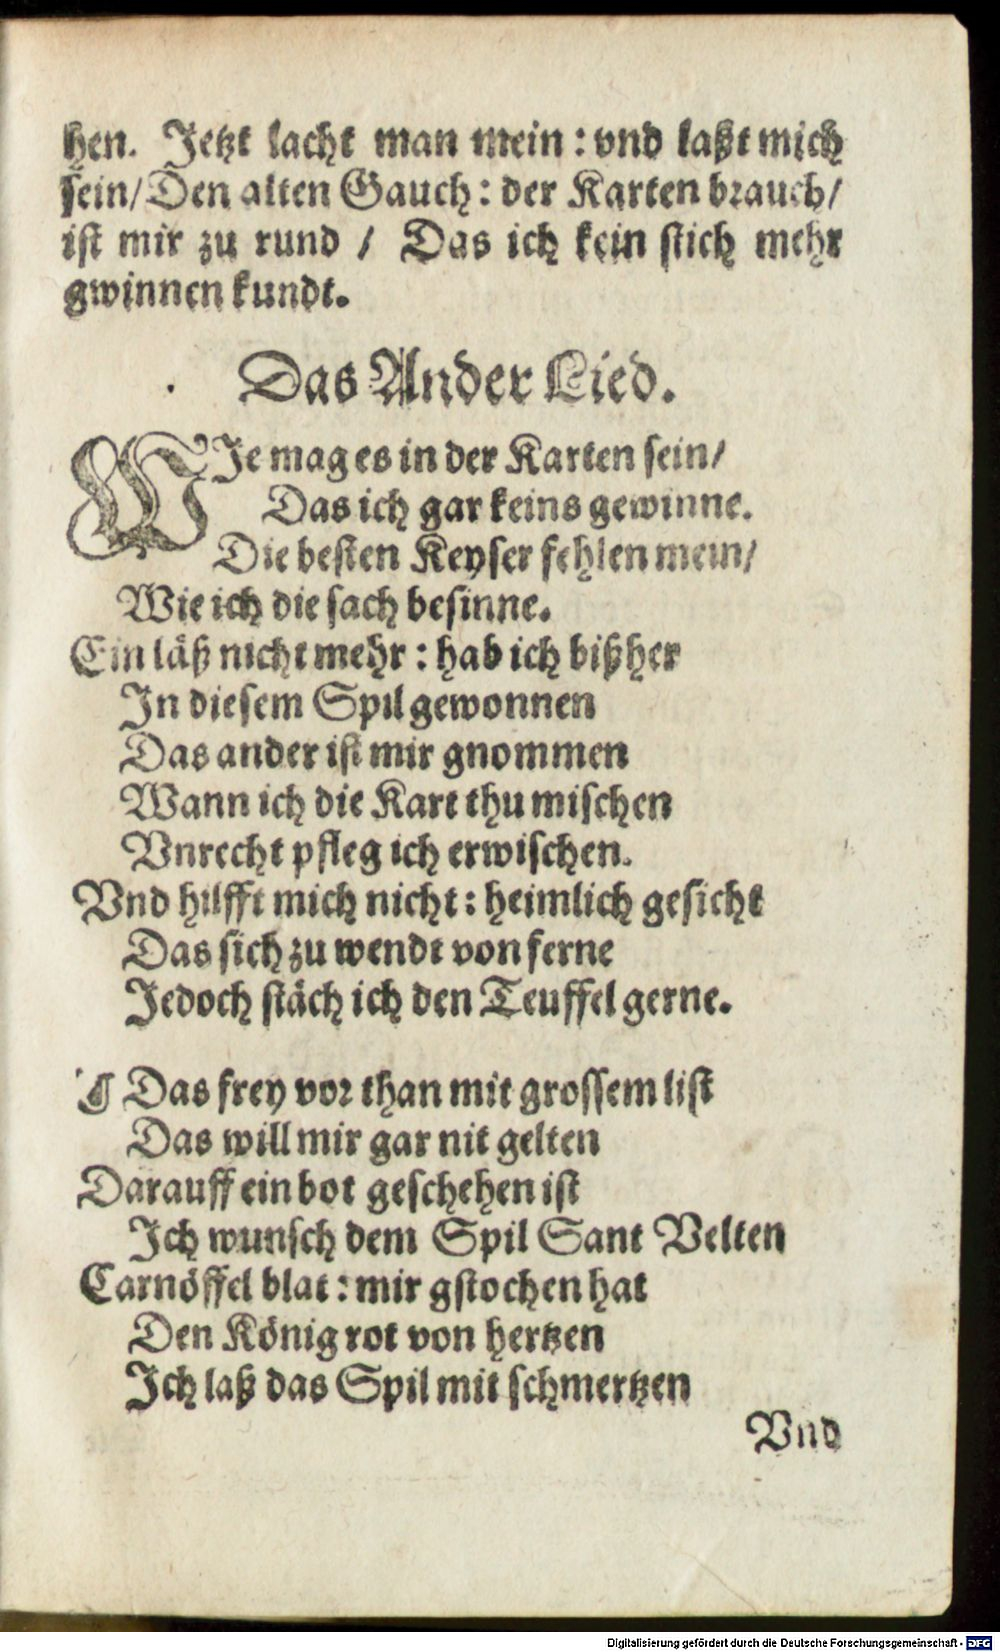 hen. Jetzt lacht man mein: vnd laßt mich
sein/ Den alten Gauch: der Karten brauch/
ist mir zu rund / Das ich kein stich mehr
gwinnen kundt.
Das Ander Lied.
WJe mag es in der Karten sein/
Das ich gar keins gewinne.
Die besten Keyser fehlen mein/
Wie ich die sach besinne.
Ein läß nicht mehr: hab ich bißher
Jn diesem Spil gewonnen
Das ander ist mir gnommen
Wann ich die Kart thu mischen
Vnrecht pfleg ich erwischen.
Vnd hilfft mich nicht: heimlich gesicht
Das sich zu wendt von ferne
Jedoch stäch ich den Teuffel gerne.
¶ Das frey vor than mit grossem list
Das will mir gar nit gelten
Darauff ein bot geschehen ist
Jch wunsch dem Spil Sant Velten
Carnöffel blat: mir gstochen hat
Den König rot von hertzen
Jch laß das Spil mit schmertzen
Vnd
Digitalisierung gefördert durch die Deutsche Forschungsgemeinschaft - DFG